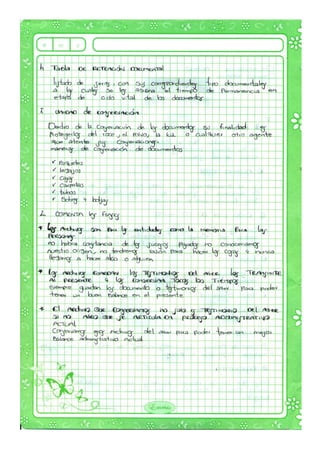 K Tabla DE RETENCIÓN DOCUMENTAL
listado de series, con sus correspondientes tipos documentales
a las cuales se les asigna el tiempo de Permanencia en
etapa de ciclo vital de los documentos
I. Unidad de conservación
Dentro de la Conservación de los documentos su finalidad es
Protegerlos del roce, el Polvo, la luz o cualquier otro agente
que atente su Conservación.
maneras de conservación de documentos
✓ Paquetes
✓ legajos
✓ Cajas
✓ Carpetas
✓ tubos
✓ Sobres y bolsas
L.
* los Archivos son Para las entidades como la memoria Para las
Personas
no habría constancia de los juegos
nuestra acción, no tendríamos razón para hacer las cosas y nunca
a hacer algo o alguien
* los archivos conservan los testimonios del Ayer, los TRANSMITE
al PRESENTE y los conservan Todos los Tiempos
Siempre guardan los documentos o testimonios del ayer Para poder
tener un buen Balance en el presente.
* El Archivo que conservamos no solo es TESTIMONIO DEL AYER
si no
ACTUAL
Conservamos esos Archivos del ayer para poder tener un mejor
Balance administrativo Actual